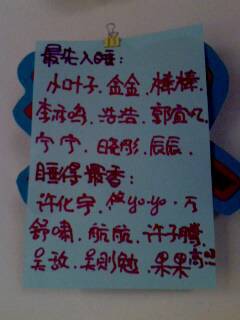 最先入睡：
小叶子.金金.棒棒.
李泳鸣.浩浩.郭宜忆.
宁宁.晓彤.辰辰.
睡得最香：
许化宁.yoyo.万
舒啸.航航.许子腾.
吴敌.吴刚勉.果果